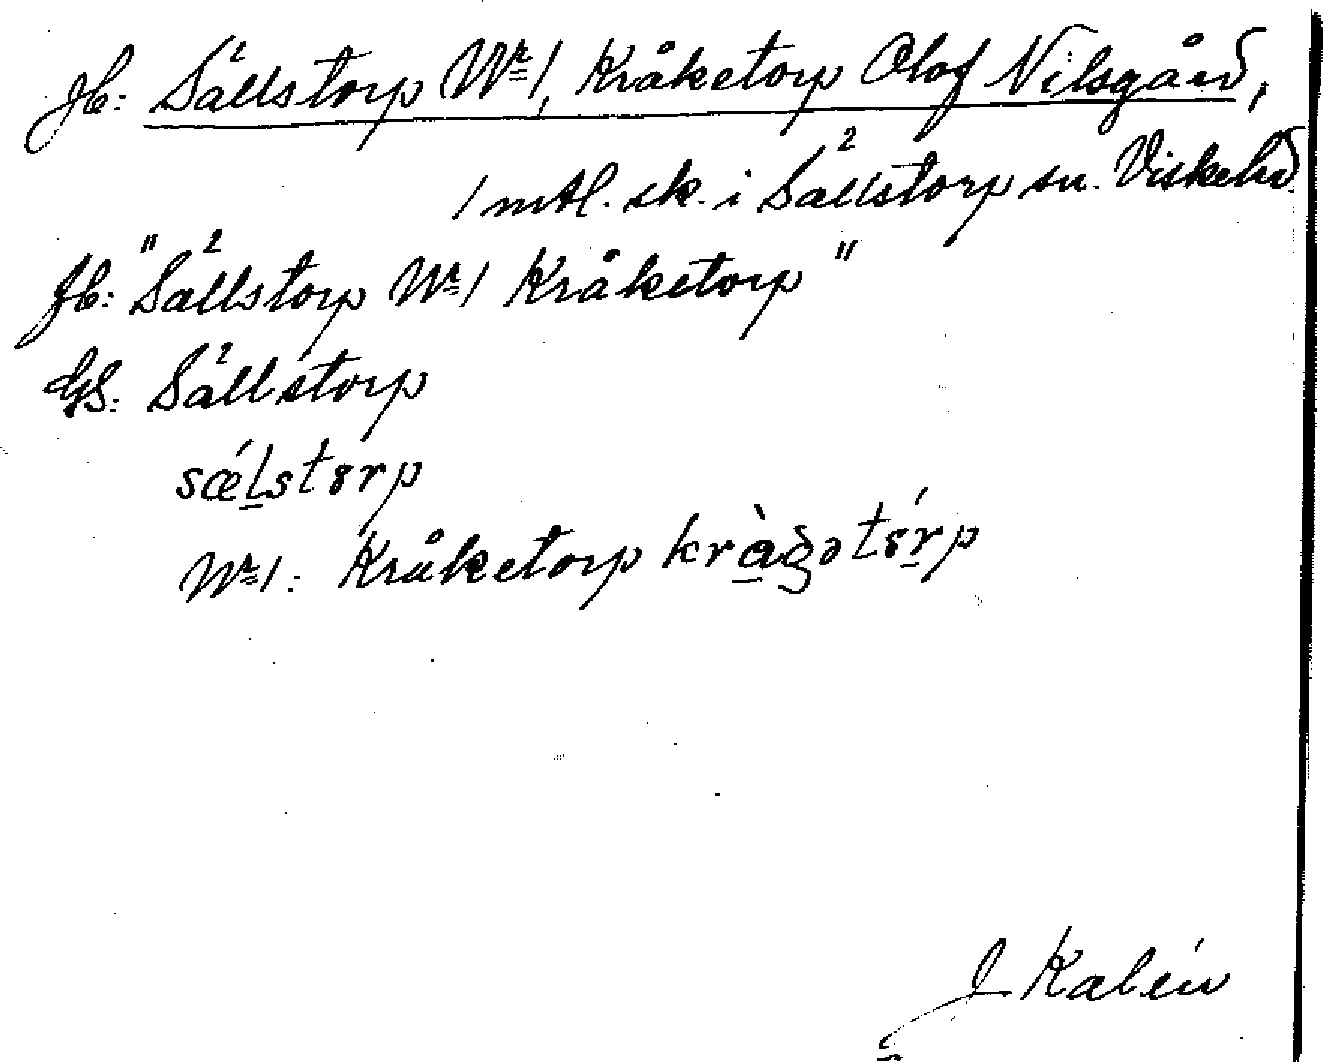 Jb: Sällstorp Nr 1, Kråketorp Olof Nilsgård,
1 mtl. sk. i Sällstorp sn. Viske hd.
Jb: "Sällstorp Nr 1 Kråketorp"
GS: Sällstorp
sǽlstɤrp
Nr 1: Kråketorp kràgətɤ́rp
J Kalén